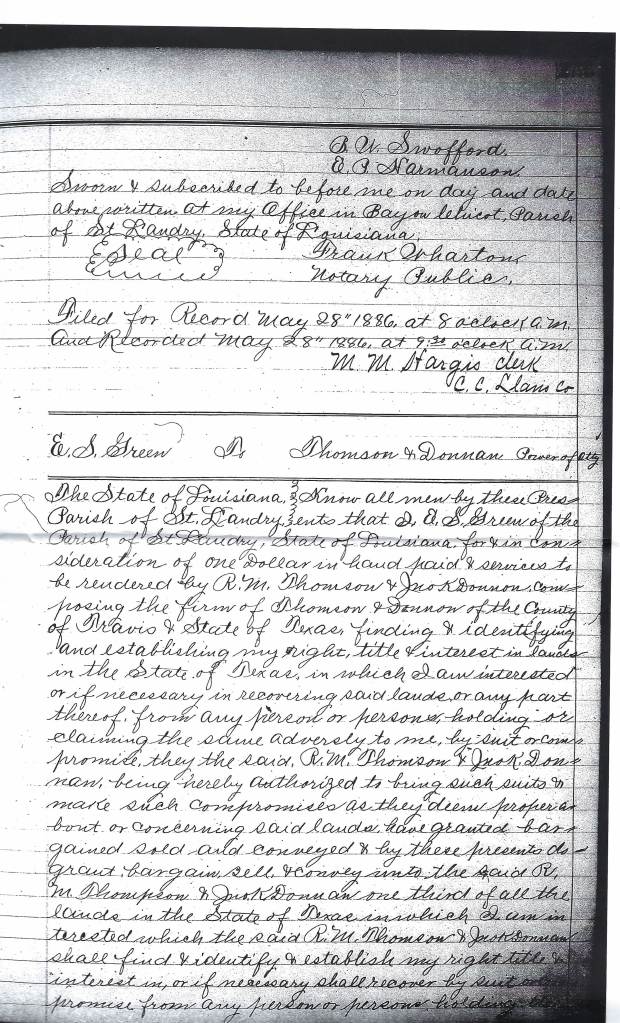 B. W. Swofford.
E. P. Normanson.
Sworn & subscribed to before me on day and date
above written at my Office in Bayou Chicot, Parish
of St Landry, State of Louisiana.
Seal Frank Wharton
Notary Public.
Filed for Record May 28" 1886, at 8 oclock A.M.
And Recorded May 28" 1886, at 9:30 oclock A.M
M. M. Hargis Clerk
C. C. Llano Co
E. S. Green To Thomson & Donnan Power of Atty
The State of Louisiana, Know all men by these Pres-
Parish of St. Landry, ents that I, E. S. Green of the
Parish of St. Landry, State of Louisiana, for & in con-
sideration of one Dollar in hand paid & services to
be rendered by R. M. Thomson & Jno K Donnon, com-
posing the firm of Thomson & Donnon of the County
of Travis & State of Texas, finding & identifying
and establishing my right, title & interest in lands
in the State of Texas, in which I am interested
or if necessary in recovering said lands, or any part
thereof, from any person or persons, holding or
claiming the same adversly to me, by suit or com-
promise, they the said, R. M. Thomson & Jno K. Don-
nan, being hereby authorized to bring such suits &
make such compromises as they deem proper a-
bout or concerning said lands, have granted bar-
gained sold and conveyed & by these presents do
grant, bargain, sell, & convey unto the said R,
M. Thompson & Jno K Donnan one third of all the
lands in the State of Texas in which I am in
terested which the said R. M. Thomson & Jno K Donnan
shall find & identify & establish my right title &
interest in, or if necessary shall recover by suit or
promise from any person or persons holding the